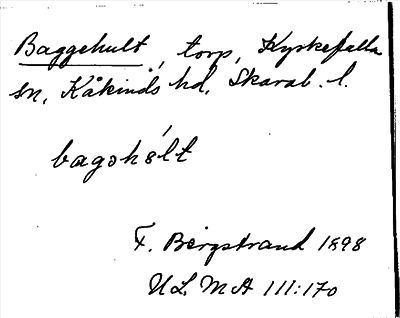 Baggehult, torp, Kyrkefalla
sn, Kåkinds hd, Skarab. l.
bagohúlt
F. Bergstrand 1898
ULMA 111:170